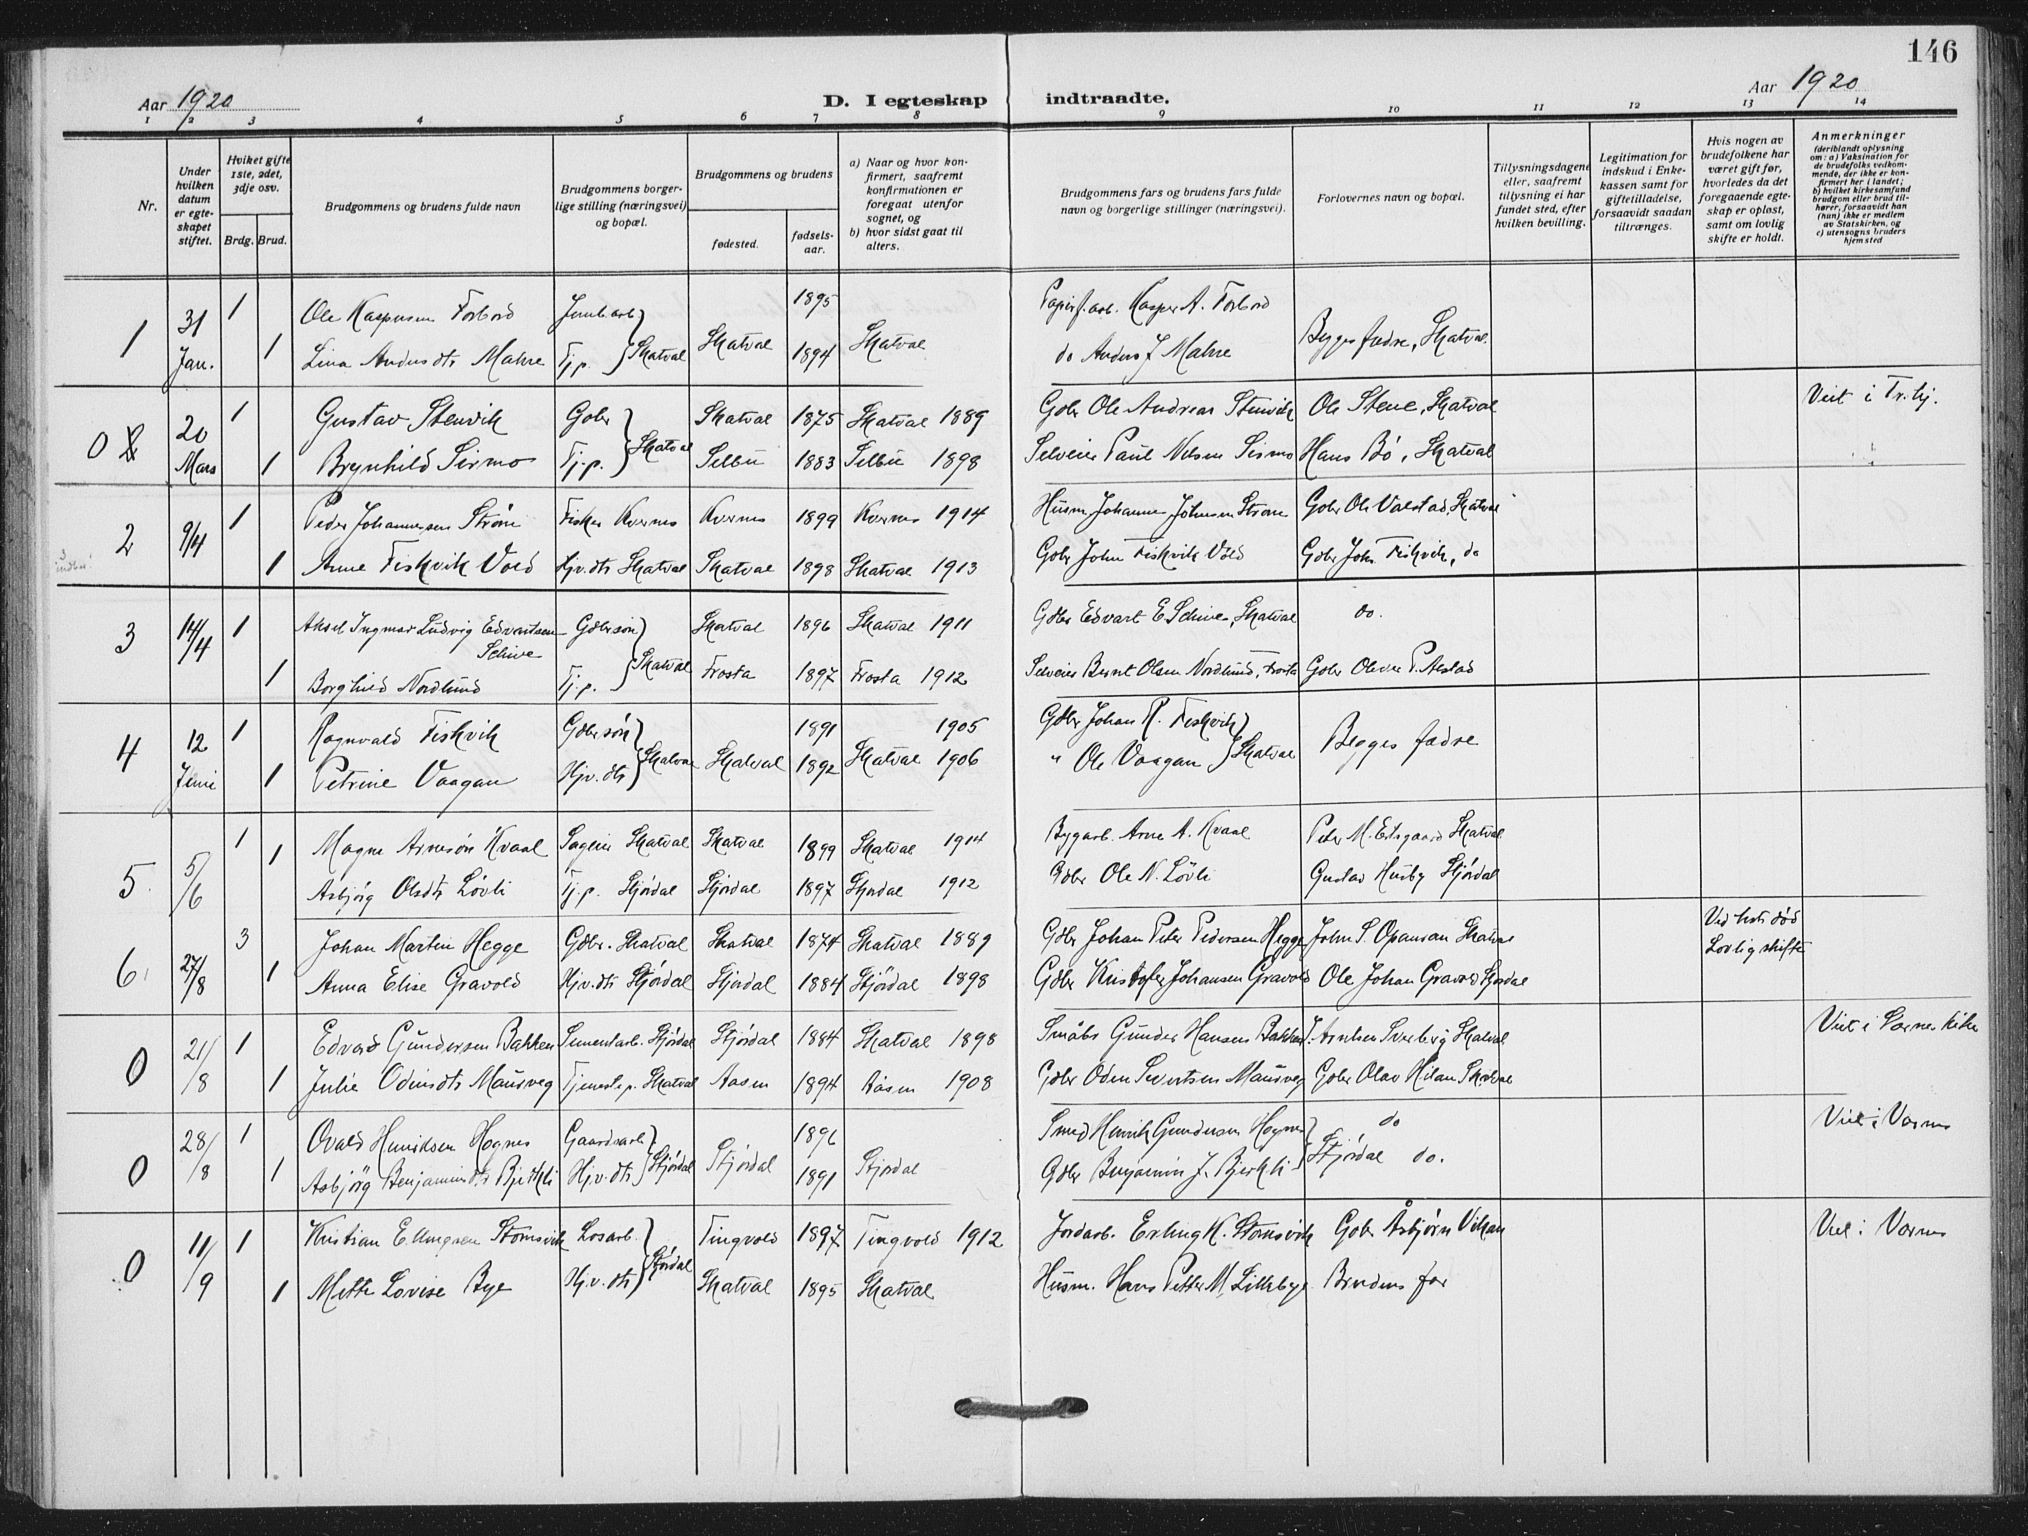 146
Aar 1920
D. I egteskap indtraadte.
Aar 1920
1 2 3 4 5 6 7 8 9 10 11 12 13 14
Nr.
Under hvilken datum er egteskapet stiftet.
Hvilket gifte 1ste, 2det, 3dje osv.
Brdg. Brud.
Brudgommens og brudens fulde navn
Brudgommens borgerlige stilling (næringsvei) og bopæl.
Brudgommens og brudens
fødested. fødselsaar.
a) Naar og hvor konfirmert, saafremt konfirmationen er foregaat utenfor sognet, og
b) hvor sidst gaat til alters.
Brudgommens fars og brudens fars fulde navn og borgerlige stillinger (næringsvei).
Forlovernes navn og bopæl.
Tillysningsdagene eller, saafremt tillysning ei har fundet sted, efter hvilken bevilling.
Legitimation for indskud i Enkekassen samt for giftetilladelse, forsaavidt saadan tiltrænges.
Hvis nogen av brudefolkene har været gift før, hvorledes da det foregaaende egteskap er opløst, samt om lovlig skifte er holdt.
Anmerkninger (deriblandt oplysning om: a) Vaksination for de brudefolks vedkommende, der ikke er konfirmert her i landet; b) hvilket kirkesamfund brudgom eller brud tilhører, forsaavidt han (hun) ikke er medlem av Statskirken, og c) utensogns bruders hjemsted
1 31 Jan. 1 Ole Kaspersen Forbord Jernb.arb. Skatval Skatval 1895 Skatval Papirf.arb. Kasper A. Forbord Begges fædre, Skatval
1 Lina Andersdtr Mahre Tj.p. 1894 do Anders J Mahre
0 20 Mars 1 Gustav Stenvik Gdbr Skatval Skatval 1875 Skatval 1889 Gdbr Ole Andreas Stenvik Ole Stene, Skatval Viet i Tr.hj.
1 Brynhild Sirmo Tj.p. Selbu 1883 Selbu 1898 Selveier Paul Nilsen Sirmo Hans Bø, Skatval
2 9/4 1 Peder Johannessen Strøm Fisker Kvernes Kvernes 1899 Kvernes 1914 Husm. Johannes Johnsen Strøm Gdbr Ole Valstad, Skatval
1 Anne Fiskvik Vold Hjv.dtr Skatval Skatval 1898 Skatval 1913 Gdbr John Fiskvik Vold Gdbr John Fiskvik, do
3 14/4 1 Aksel Ingmar Ludvig Edvartsen Schive Gdbrsøn Skatval Skatval 1896 Skatval 1911 Gdbr Edvart E Schive, Skatval do.
1 Borghild Nordlund Tj.p. Frosta 1897 Frosta 1912 Selveier Bernt Olsen Nordlund, Frosta Gdbr Oliver P. Alstad
4 12 Juni 1 Ragnvald Fiskvik Gdbrsøn Skatval Skatval 1891 Skatval 1905 Gdbr Johan R. Fiskvik Skatval Begges fædre
1 Petrine Vaagan Hjv.dtr 1892 1906 " Ole Vaagan
5 5/6 1 Magne Arnesøn Kvaal Sageier Skatval Skatval 1899 Skatval 1914 Bygarb. Arne A. Kvaal Peter M. Eidsgaard Skatval
1 Asbjørg Olsdtr Løvli Tj.p. Stjørdal Stjørdal 1897 Stjørdal 1912 Gdbr Ole N. Løvli Gustav Husby Stjørdal
6 27/8 3 Johan Martin Hegge Gdbr. Skatval Skatval 1874 Skatval 1889 Gdbr Johan Peter Pedersen Hegge John S. Opauran Skatval Ved hstr død Lovlig skifte
1 Anna Elise Gravold Hjv.dtr Stjørdal Stjørdal 1884 Stjørdal 1898 Gdbr Kristofer Johansen Gravold Ole Johan Gravold Stjørdal
0 21/8 1 Edvard Gundersen Bakken Sementarb. Stjørdal Stjørdal 1884 Skatval 1898 Småbr Gunder Hansen Bakken J. Arntsen Sverberg Skatval Viet i Værnes kirke
1 Julie Odinsdtr Mausveg Tjenestep. Skatval Aasen 1894 Aasen 1908 Gdbr Oden Sivertsen Mausveg Gdbr Olav Hilan Skatval
0 28/8 1 Ovald Henriksen Hognes Gaardsarb. Stjørdal Stjørdal 1896 Stjørdal Smed Henrik Gundersen Hognes Stjørdal do Viet i Værnes
1 Asbjørg Benjaminsdtr Bjerkli Hjv.dtr 1891 Gdbr Benjamin J. Bjerkli do.
0 11/9 1 Kristian Ellingsen Stomsvik Losarb. Stjørdal Tingvold 1897 Tingvold 1912 Jordarb. Erling K. Stomsvik Gdbr Åsbjørn Vikan Viet i Værnes
1 Mette Lovise Bye Hjv.dtr Skatval 1895 Skatval Husm. Hans Petter M. Lillebye Brudens far